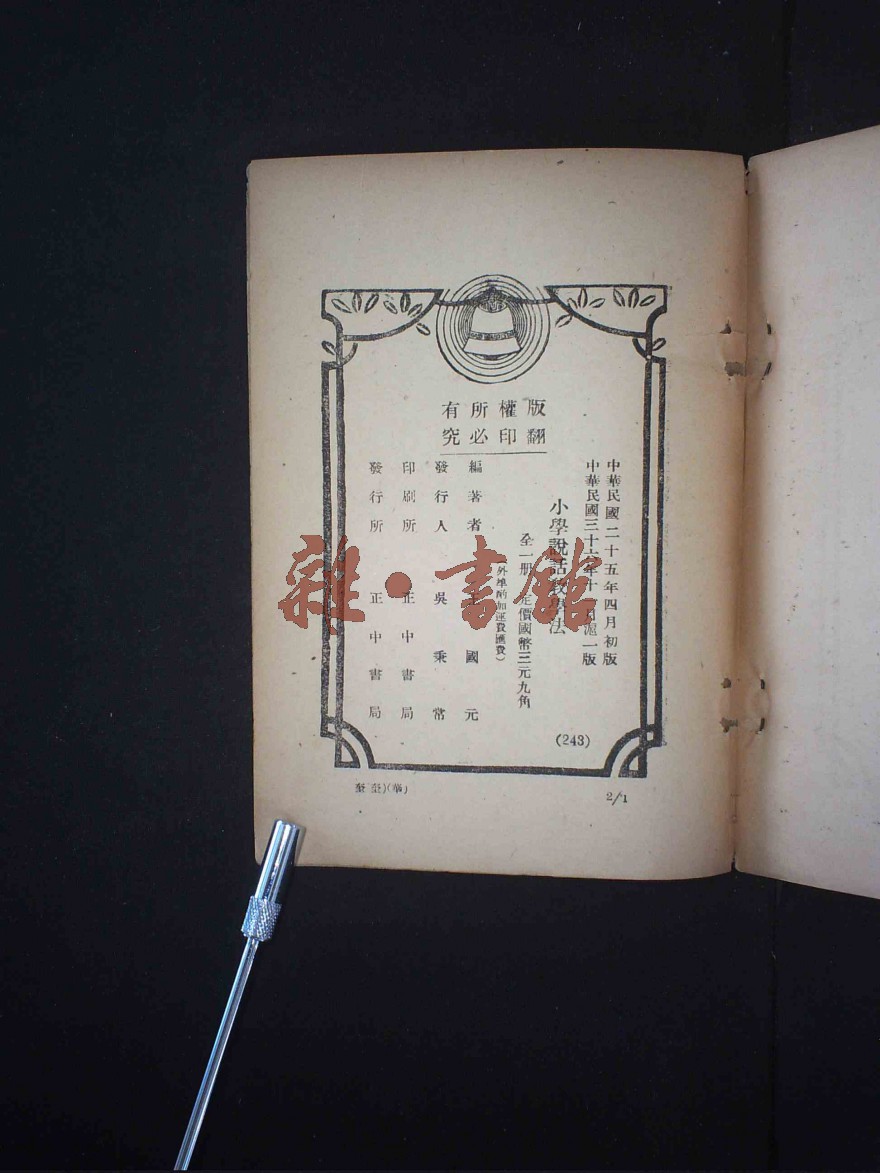 版權所有
翻印必究
中華民國二十五年四月初版
中華民國三十六年十月滬一版
小學說話教學法
全一册 定價國幣三元九角
(外埠酌加運費匯費)
編著者 王國元
發行人 吳秉常
印刷所 正中書局
發行所 正中書局
(243)
2/1
雜·書館